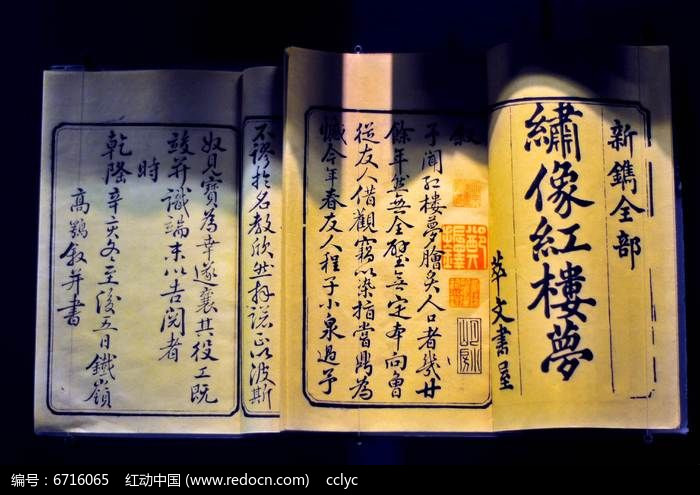 新鐫全部
繡像紅樓夢
萃文書屋
叙
予聞紅樓夢膾炙人口者幾廿
餘年然無全璧無定本向曾
從友人借觀竊以染指嘗鼎為
憾今年春友人程子小泉過予
不謬於名教欣然拜諾正以波斯
奴見寶為幸遂襄其役工既
竣并識端末以告閱者
時
乾隆辛亥冬至後五日鐵嶺
高鶚叙并書
鄭振鐸
编号：6716065 红动中国 (www.redocn.com) cclyc